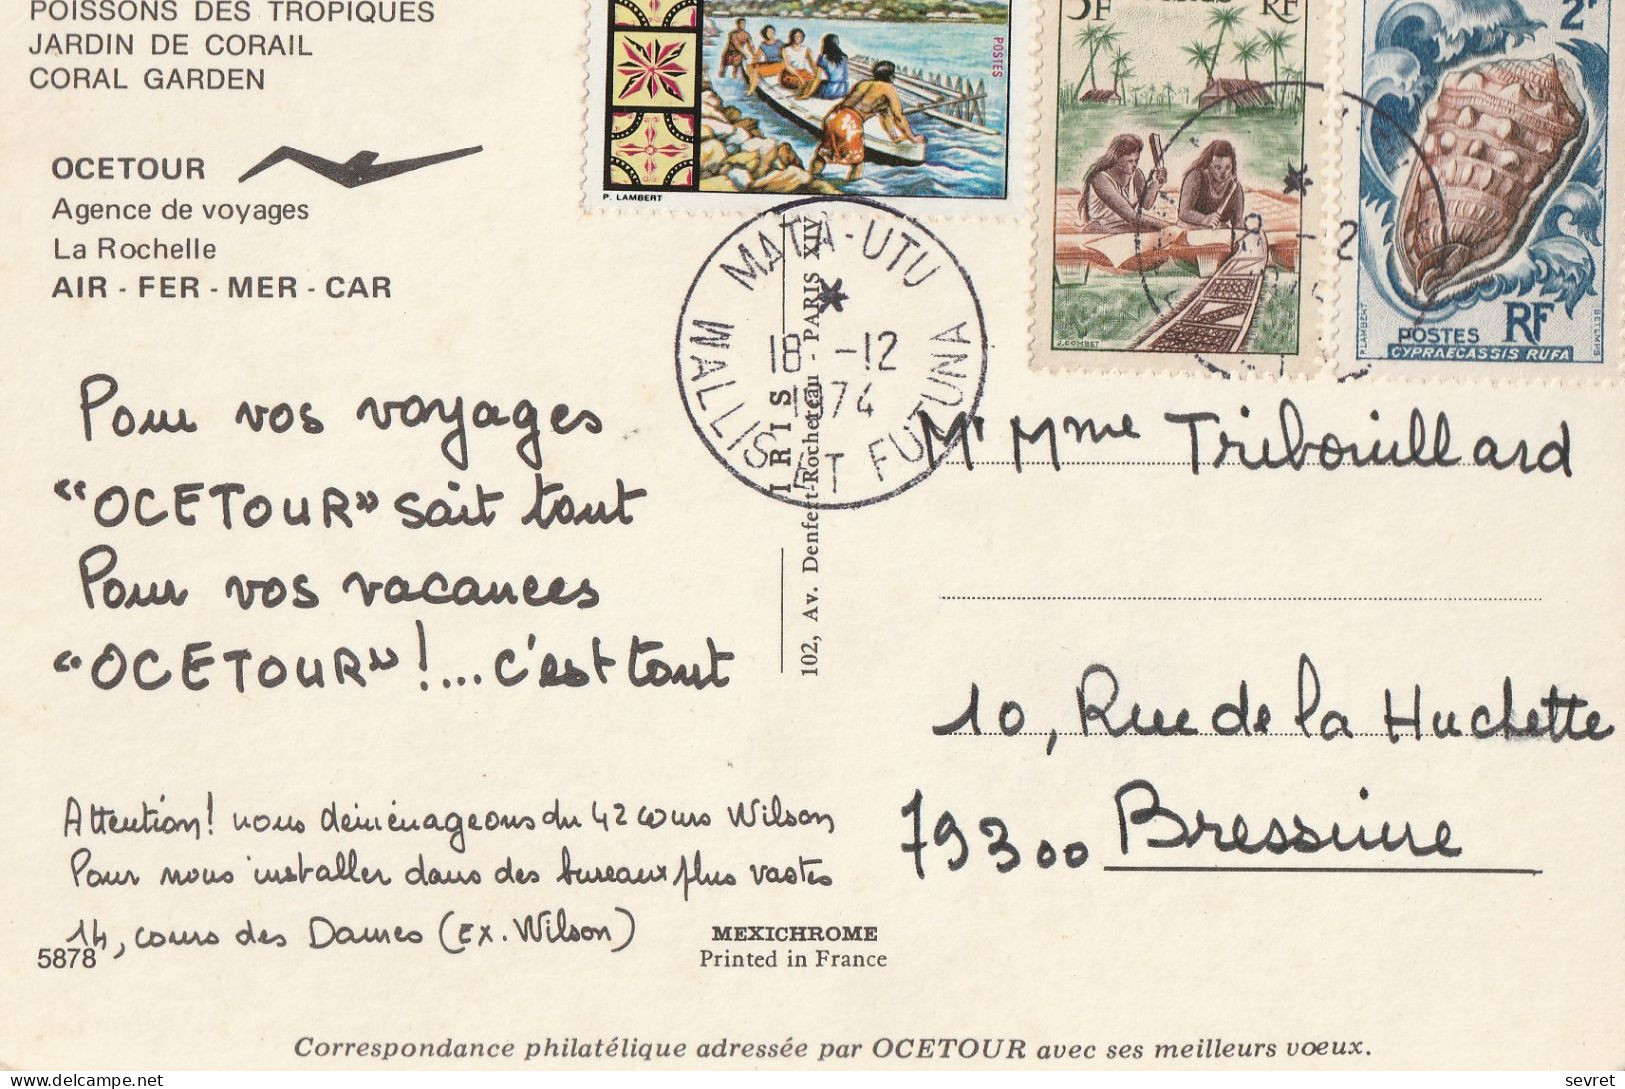 POISSONS DES TROPIQUES
JARDIN DE CORAIL
CORAL GARDEN
OCETOUR
Agence de voyages
La Rochelle
AIR - FER - MER - CAR
Pour vos voyages
"OCETOUR" sait tout
Pour vos vacances
"OCETOUR"!... c'est tout
Attention! nous déménageons du 42 cours Wilson
Pour nous installer dans des bureaux plus vastes
14, cours des Dames (Ex. Wilson)
5878
MEXICHROME
Printed in France
Correspondance philatélique adressée par OCETOUR avec ses meilleurs voeux.
IRIS
102, Av. Denfert-Rochereau - PARIS XIV
P. LAMBERT
POSTES
MATA-UTU
18 -12
1974
WALLIS ET FUTUNA
5F
RF
J. COMBET
2F
POSTES RF
CYPRAECASSIS RUFA
P. LAMBERT
BETEMPS
-2
Mr Mme Tribouillard
10, Rue de la Huchette
79300 Bressuire
sevret